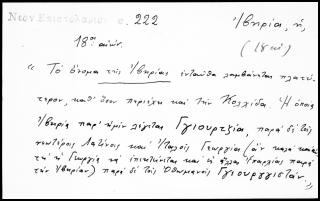 Νεον Επιστολαριον σ. 222
Ἰβηρία, ἡ,
18ος αἰών.
(18αἰ)
« Τὸ ὄνομα τῆς Ἰβηρίας ἐνταῦθα λαμβάνεται πλατύ-
τερον, καθ' ὅσον περιέχει καὶ τὴν Κολχίδα. Ἡ ὁποία
Ἰβηρία παρ' ἡμῖν λέγεται Γγιουρτζία, παρὰ δὲ τοῖς
νεωτέροις Λατίνοις καὶ Ἰταλοῖς Γεωργία (ἂν καλὰ καὶ
τῇ Γεωργίᾳ νὰ καὶ ἄλλαι ἐπαρχίαι παρὰ
τὴν Ἰβηρίαν) παρὰ δὲ τοῖς Ὀθωμανοῖς Γγιουργγιστάν.